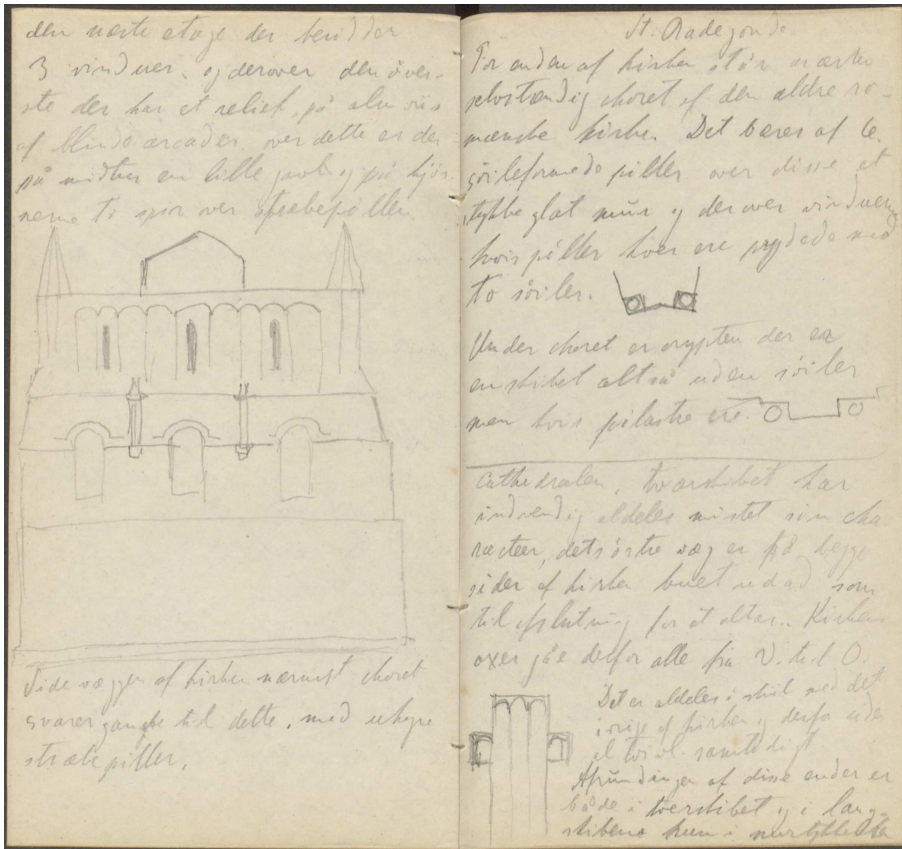 den næste etage der besidder
3 vinduer, og derover den över-
ste der har et relief, på alm vis
af blinde arcader, over dette er der
på midten en lille gavl og på hjör
nerne to spir over stræbepillen
Sidevæggen af kirken nærmest choret
svarer ganske til dette, med uhyre
stræbepiller.
St. Radegonde
For enden af kirken står næsten
selvstændig choret af den ældre ro-
manske kirke. Det bæres af 6
söileformede piller over disse et
tykke glat mur og derover vinduer
hvis piller hver ere prydede med
to söiler.
Under choret er crypten der er
enskibet altså uden söiler
men hvis pilastre ere.
Cathedralen, tværskibet har
indvendig aldeles mistet sin cha
racteer, dets östre væg er på begge
sider af kirken buet udad som
til afslutning for et altar.. Kirkens
axer gåe derfor alle fra V. til O.
Det er aldeles i stiil med det
övrige af kirken og derfor uden
al tvivl samtidigt
Afrundingen af disse ender er
både i tverskibet og i lang-
skibene kun i murtykkelsen